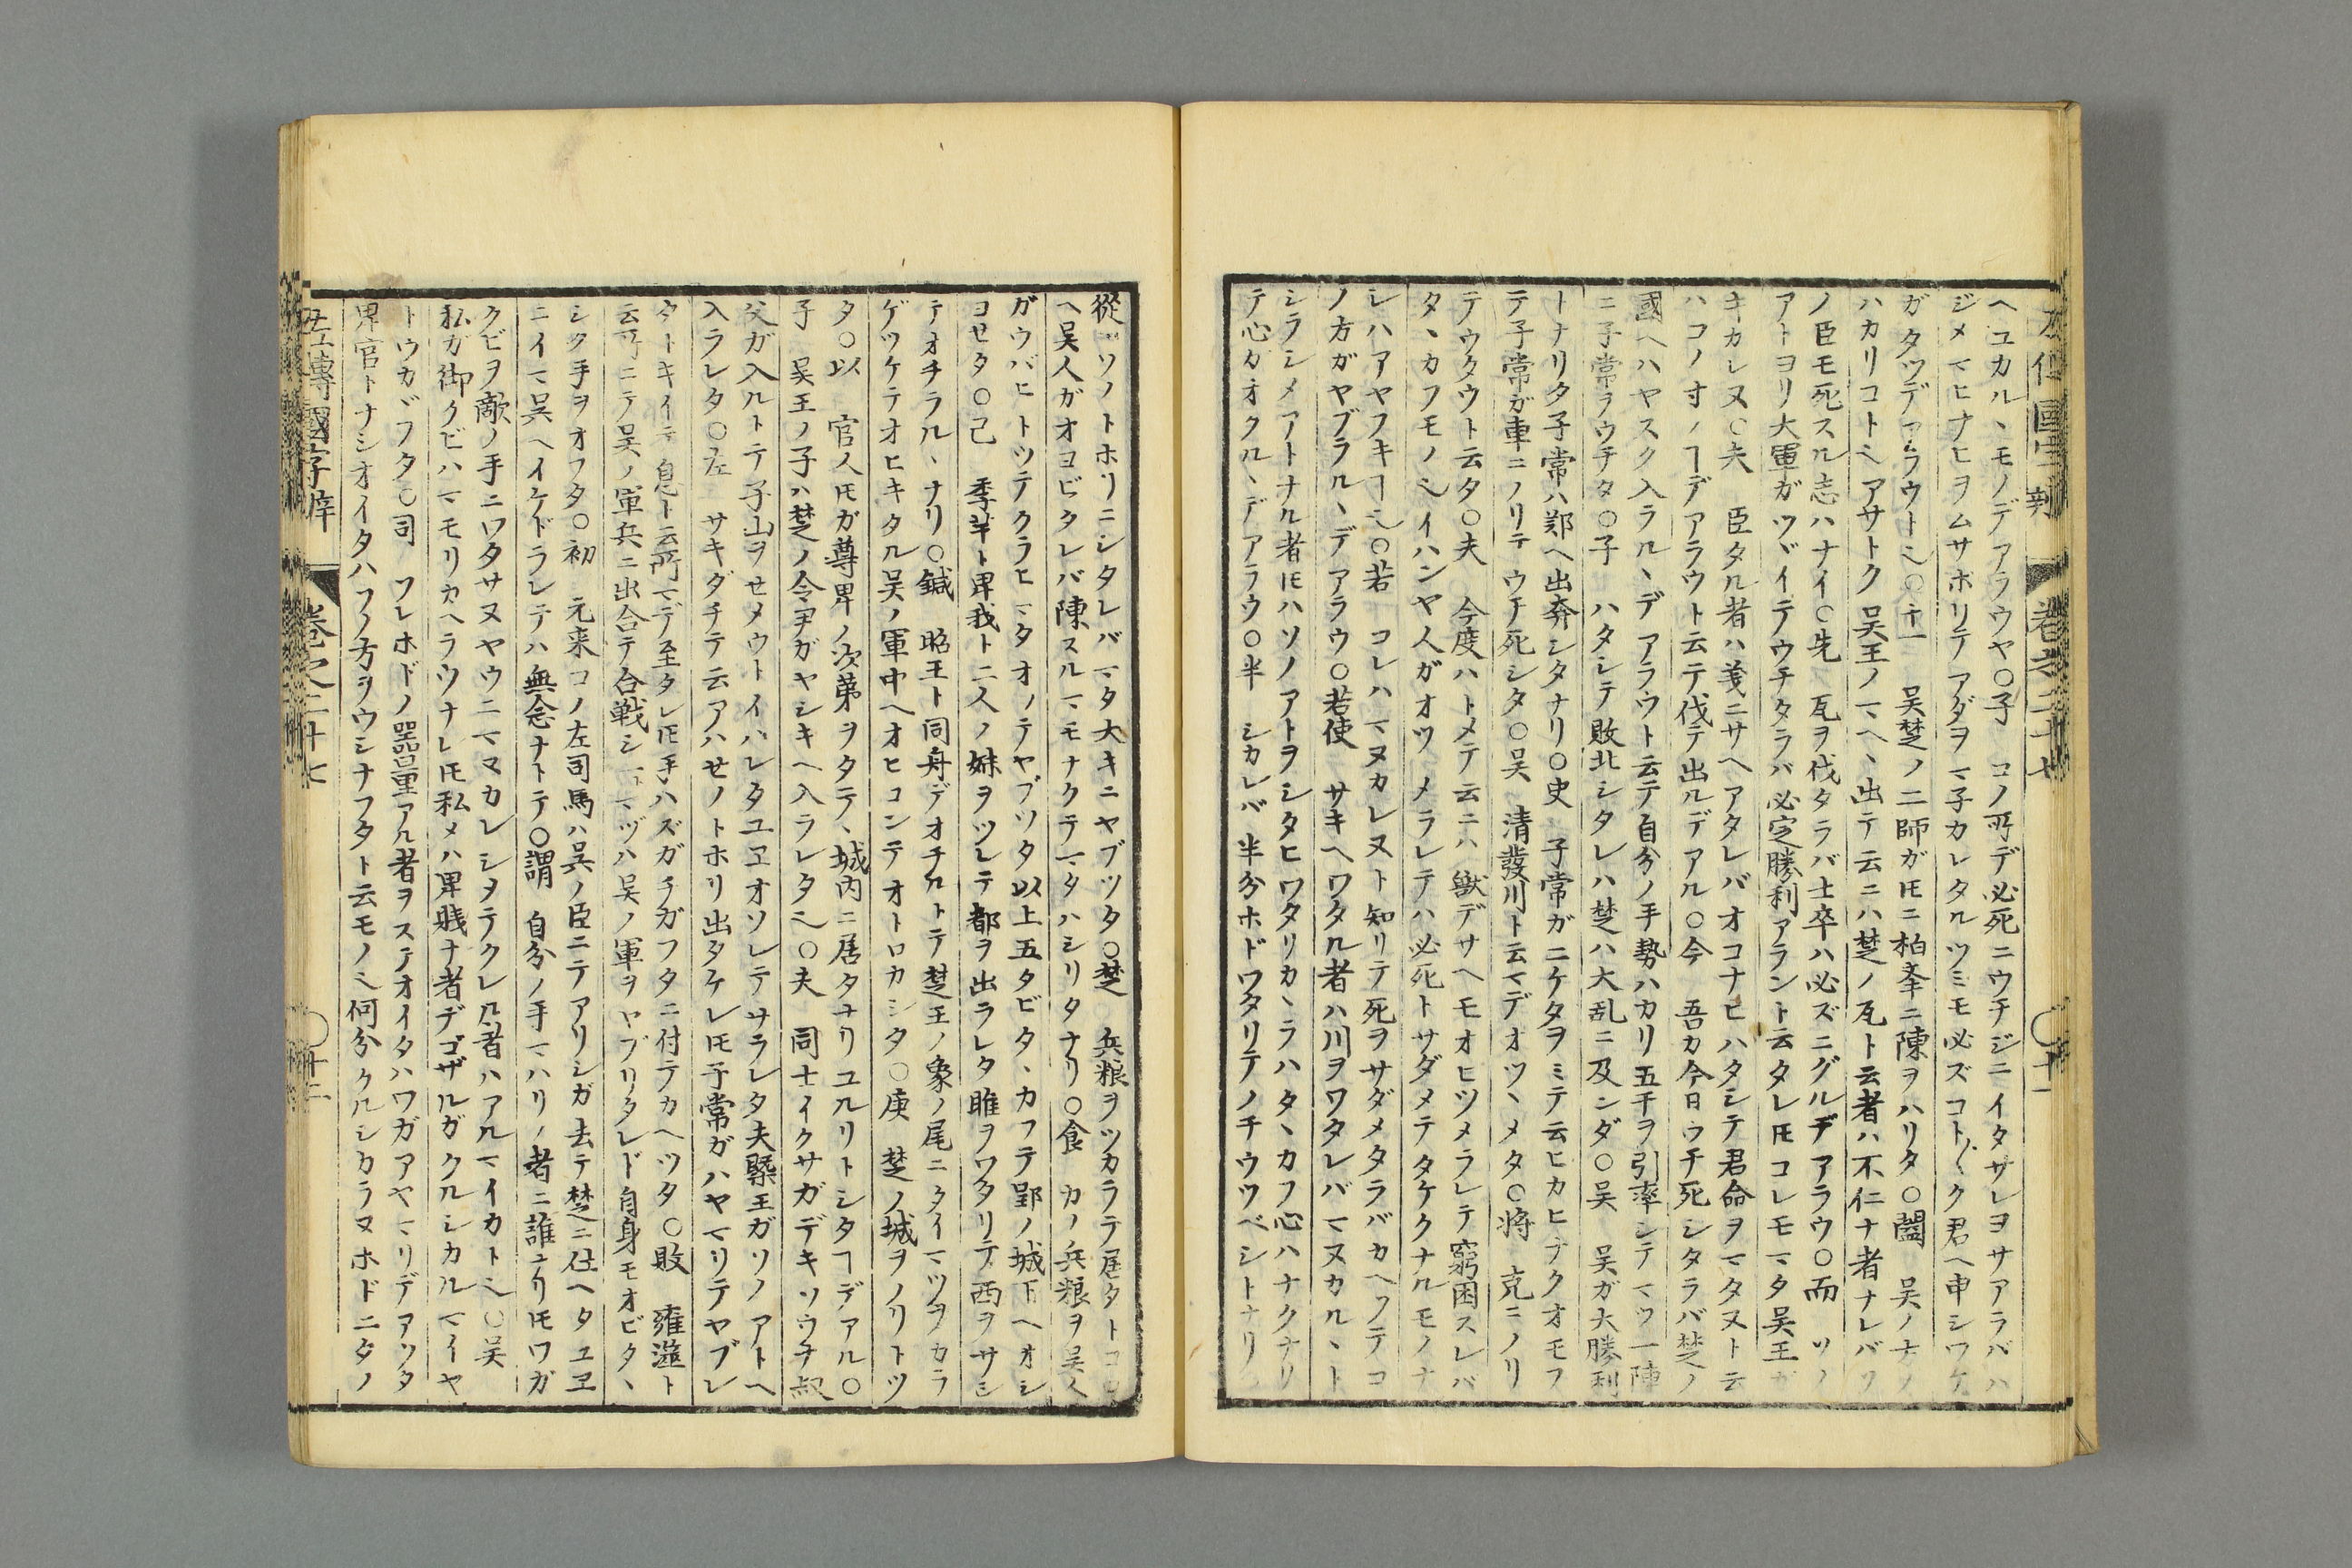 左傳國字辨　卷之二十七　〇十一
ヘユカルヽモノデアラウヤ〇子　コノ所デ必死ニウチジニイタサレヨサアラバハ
ジメマヒナヒヲムサホリテアダヲマ子カレタルツミモ必ズコト〴〵ク君ヘ申シワケ
ガタツデアラウトヘ〇十一　吴楚ノ二師ガ𪜈ニ柏擧ニ陳ヲハリタ〇闔　吴ノナ
ハカリコトヘアサトク吴王ノマヘヽ出テ云ニハ楚ノ瓦ト云者ハ不仁ナ者ナレバソ
ノ臣モ死スル志ハナイ〇先　瓦ヲ伐タラバ士卒ハ必ズニグルデアラウ〇而　ソノ
アトヨリ大軍ガツヾイテウチタラバ必定勝利アラント云タレ𪜈コレモマタ吴王ガ
キカレヌ〇夫　臣タル者ハ義ニサヘアタレバオコナヒハタシテ君命ヲマタヌト云
ハコノ寸ノヿデアラウト云テ伐テ出ルデアル〇今　吾カ今日ウチ死シタラバ楚ノ
國ヘハヤスク入ラルヽデアラウト云テ自分ノ手勢ハカリ五千ヲ引率シテマツ一陣
ニ子常ヲウチタ〇子　ハタシテ敗北シタレハ楚ハ大乱ニ及ンダ〇吴　吴ガ大勝利
トナリタ子常ハ郑ヘ出奔シタナリ〇史　子常ガニケタヲミテ云ヒカヒナクオモフ
テ子常ガ車ニノリテウチ死シタ〇吴　清發川ト云マデオツヽメタ〇將　克ニノリ
テウタウト云タ〇夫　今度ハトメテ云ニハ獣デサヘモオヒツメラレテ窮困スレバ
タヽカフモノヘイハンヤ人ガオツメラレテハ必死トサダメテタケクナルモノナ
レハアヤフキヿヘ〇若　コレハマヌカレヌト知リテ死ヲサダメタラバカヘツテコ
ノ方ガヤブラルヽデアラウ〇若使　サキヘワタル者ハ川ヲワタレバマヌカルヽト
シラシメアトナル者𪜈ハソノアトヲシタヒワタリカヽラハタヽカフ心ハナクナリ
テ心カオクルヽデアラウ〇半　シカレバ半分ホドワタリテノチウツベシトナリ
從　ソノトホリニシタレバマタ大キニヤブツタ〇楚　兵粮ヲツカラテ居タトコロ
ヘ吴人ガオヨビタレバ陳スルマモナクテマタハシリタナリ〇食　カノ兵粮ヲ吴人
ガウバヒトツテクラヒマタオツテヤブツタ以上五タビタヽカフテ郢ノ城下ヘオシ
コセタ〇己　季羋ト畀我ト二人ノ妹ヲツレテ都ヲ出ラレタ睢ヲワタリテ西ヲサシ
テオチラルヽナリ〇鍼　昭王ト同舟デオチルトテ楚王ノ象ノ尾ニタイマツヲカラ
ゲツケテオヒキタル吴ノ軍中ヘオヒコンテオトロカシタ〇庚　楚ノ城ヲノリトツ
タ〇以　官人𪜈ガ尊卑ノ次第ヲタテヽ城内ニ居タナリユルリトシタヿデアル〇
子　吴王ノ子ハ楚ノ令尹ガヤシキヘ入ラレタヘ〇夫　同士イクサガデキソウナ叔
父ガ入ルトテ子山ヲセメウトイハレタユヱオソレテサラレタ夫槩王ガソノアトヘ
入ラレタ〇左　サキダチテ云アハセノトホリ出タケレ𪜈子常ガハヤマリテヤブレ
タトキイテ息ト云所マデ至タレ𪜈手ハズガチガフタニ付テカヘツタ〇敗　雍澨ト
云所ニテ吴ノ軍兵ニ出合テ合戦シ　マヅハ吴ノ軍ヲヤブリタレド自身モオビタヽ
シク手ヲオフタ〇初　元来コノ左司馬ハ吴ノ臣ニテアリシガ去テ楚ニ仕ヘタユヱ
ニイマ吴ヘイケドラレテハ無念ナトテ〇謂　自分ノ手マハリノ者ニ誰ニリ𪜈ワガ
クビヲ敵ノ手ニワタサヌヤウニママカレシヲテクレル者ハアルマイカトヘ〇吴
私ガ御クビハマモリカヘラウツナレ𪜈私メハ卑賎ナ者デゴザルガクルシカルマイヤ
トウカヾフタ〇司　ワレホドノ器量アル者ヲステオイタハワガアヤマリデアツタ
卑官トナシオイタハワノ方ヲウシナフタト云モノヘ何分クルシカラヌホドニタノ
左傳國字辨　卷之二十七　〇十二